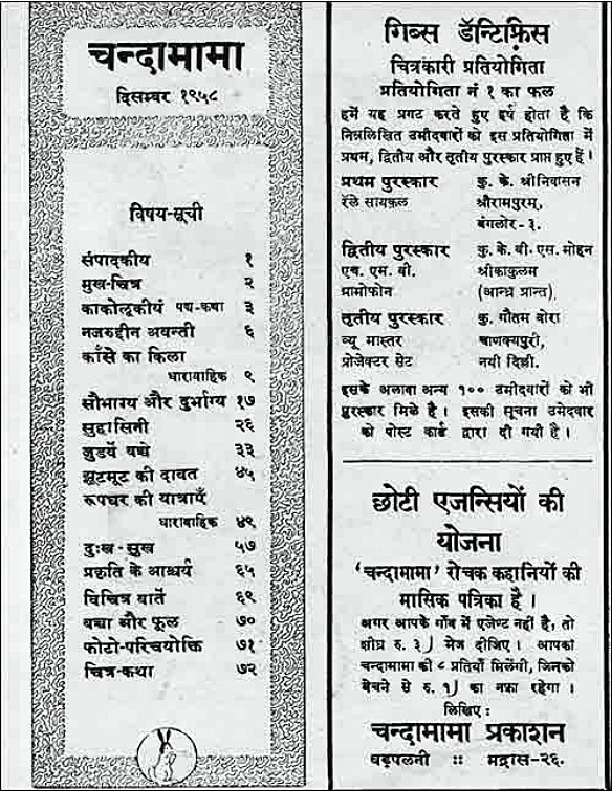 चन्दामामा
दिसम्बर १९५८
विषय-सूची
संपादकीय १
मुख-चित्र २
काकोलूकीयं पद्य-कथा ३
नजरुद्दीन अवन्ती ६
काँसे का किला
धारावाहिक ९
सौभाग्य और दुर्भाग्य १७
सुहासिनी २६
जुडवें बच्चे ३३
झूटमूट की दावत ४५
रूपधर की यात्राएँ
धारावाहिक ४९
दुःख - सुख ५७
प्रकृति के आश्चर्य ६५
विचित्र बातें ६९
बच्चा और फूल ७०
फोटो-परिचयोक्ति ७१
चित्र-कथा ७२
गिब्स डॅन्टिफ्रिस
चित्रकारी प्रतियोगिता
प्रतियोगिता नं १ का फल
हमें यह प्रगट करते हुए हर्ष होता है कि
निम्नलिखित उमीदवारों को इस प्रतियोगिता में
प्रथम, द्वितीय और तृतीय पुरस्कार प्राप्त हुए हैं।
प्रथम पुरस्कार कु. के. श्रीनिवासन
रॅले सायकल श्रीरामपुरम्,
बंगलोर - ३.
द्वितीय पुरस्कार कु. के. वी. एस. मोहन
एच. एम. वी. श्रीकाकुलम
ग्रामोफोन (आन्ध्र प्रान्त).
तृतीय पुरस्कार कु. गौतम वोरा
व्यू मास्तर चाणक्यपुरी,
प्रोजेक्टर सेट नयी दिल्ली.
इसके अलावा अन्य १०० उमीदवारों को भी
पुरस्कार मिले है। इसकी सूचना उमेदवार
को पोस्ट कार्ड द्वारा दी गयी है।
छोटी एजन्सियों की
योजना
‘चन्दामामा’ रोचक कहानियों की
मासिक पत्रिका है।
अगर आपके गाँव में एजेण्ट नहीं है, तो
शीघ्र रु. ३) भेज दीजिए। आपको
चन्दामामा की ८ प्रतियाँ मिलेंगी, जिनको
बेचने से रु. १) का नफ़ा रहेगा।
लिखिए:
चन्दामामा प्रकाशन
वड़पलनी :: मद्रास-२६.